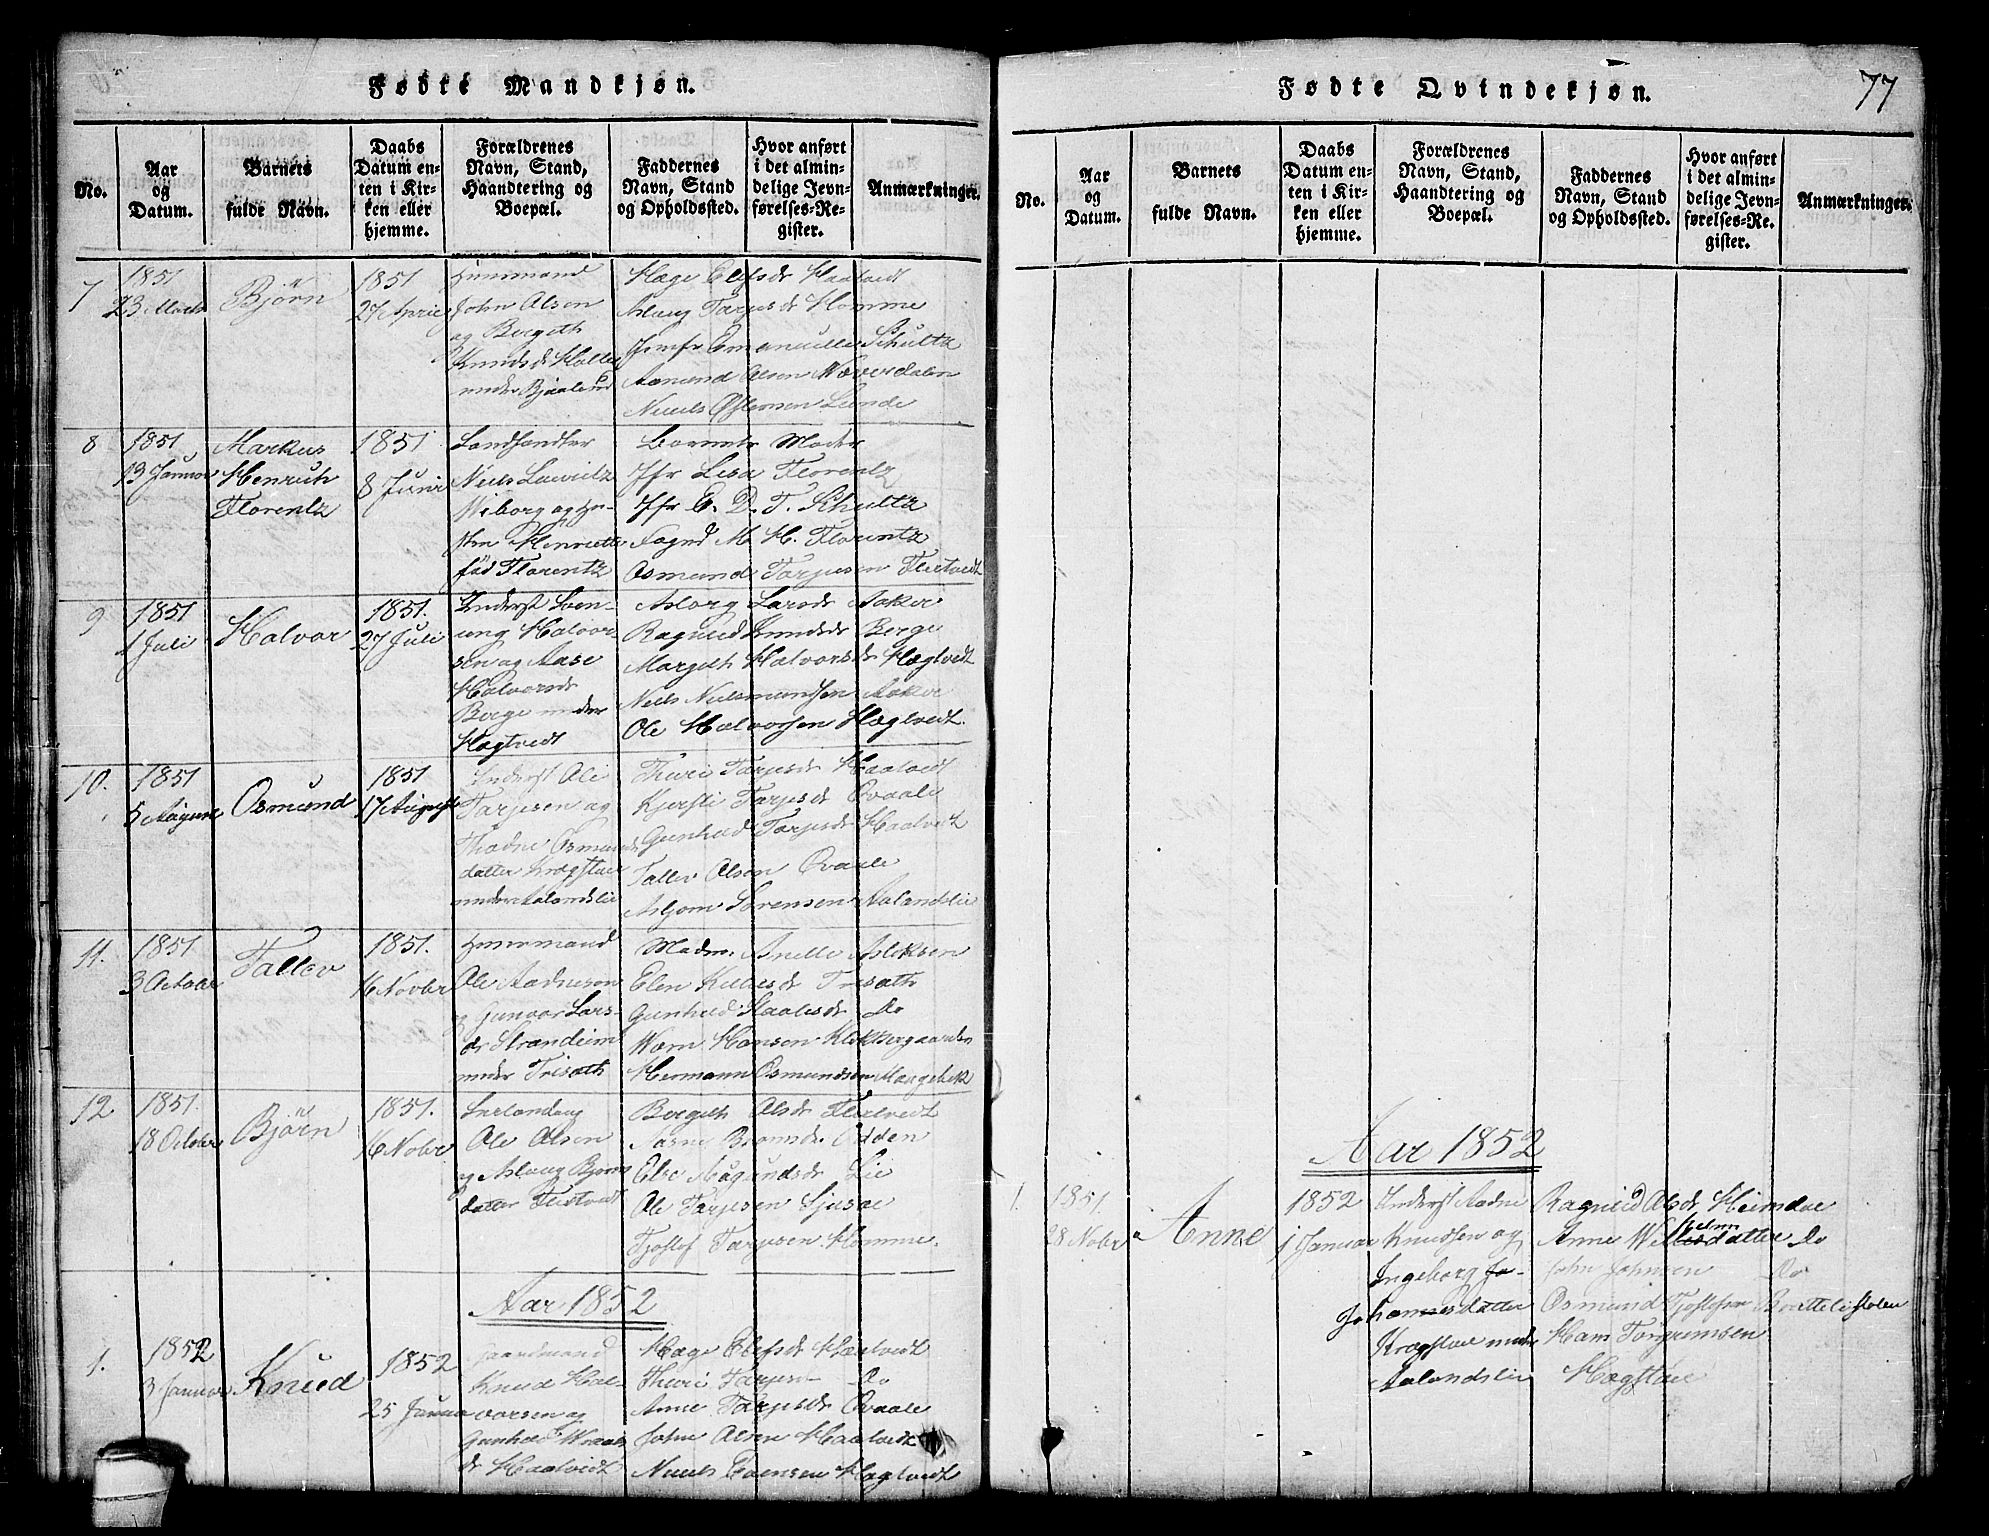 77
Fødte Mandkjøn.
No.
Aar og Datum.
Barnets fulde Navn.
Daabs Datum enten i Kirken eller hjemme.
Forældrenes Navn, Stand, Haandtering og Boepæl.
Faddernes Navn, Stand og Opholdssted.
Hvor anført i det almindelige Jevnførelses-Register.
Anmærkninger.
7
1851
23 Marts
Bjørn
1851
27 April
Huusmand
John Olsen
og Bergeth
Knudsdr
under Bjaalund
Hæge Olefsdr Haatvedt
Aslaug Tarjesdr Homme
Jomfr Emanuelle Schultz
Aamund Olsen
Niels Østensen Lunde
8
1851
13 Januar
Markus
Henrich
Florentz
1851
8 Juni
Landhandler
Niels Lauritz
Wiborg og Hu-
stru Henriette
fød Florentz
Barnets Moder
Jfr Lisa Florentz
Jfr E. D. T. Schultz
Fogud M. H. Florentz
Osmund Tarjesen Flatvedt
9
1851
1 Juli
Halvor
1851.
27 Juli
Inderst Sven-
ung Halvor-
sen og Aase
Halvorsdr
Berge under
Hægtvedt
Aslorg Larsdr Aaker
Ragnild Knudsdr Berge
Margeth Halvorsdr Hægtvedt
Niels Nielsmundsen Aaker
Ole Halvorsen Hægtvedt.
10.
1851
5 August
Osmund
1851
17 August
Inderst Ole
Tarjesen og
Thodne Osmunds
datter Kragstaae
under Aalandslie
Thuri Tarjesdr Haatvedt
Kjersti Tarjesdr Qvaale
Gunhild Tarjesdr Haatvedt
Tallev Olsen Qvaale
Asljom Sørensen Aalandslie
11.
1851.
3 Octobr
Tallev
1851.
16 Novbr
Huusmand
Ole Aadnesen
og Gunvor Lars-
dr Strandeim
under Trisæth
Madm. Anelle Aslaksen
Elen Trisæth
Gunhild Do
Wærn Hansen Klokkergaarden
Hermann Osmundsen Haugebek
12
1851.
18 Octobr
Bjørn
1851.
16 Nobr
Ole Olsen
og Aslaug Bjørns
datter Flatvedt
Bergeth Olsdr Flatvedt
Odden
Else Aagundsdr Lie
Ole Tarjesen
Tjostof Tarjesen Homme.
Aar 1852
1.
1852
3 Januar
Knud
1852
25 Januar
Gaardmand
Knud Hal-
vorsen og
Gunhild
dr Haatvedt
Hæge Olefsdr Haatvedt
Thuri Tarjes- Do
Anne Tarjesdr Qvaale
John Olsen Haatvedt
Niels Evensen Hægtvedt
Fødte Qvindekjøn.
No.
Aar og Datum.
Barnets fulde Navn.
Daabs Datum enten i Kirken eller hjemme.
Forældrenes Navn, Stand, Haandtering og Boepæl.
Faddernes Navn, Stand og Opholdssted.
Hvor anført i det almindelige Jevnførelses-Register.
Anmærkninger.
Aar 1852
1.
1851.
28 Nobr
Anne
1852
1 Januar
Inderst Aadne
Knudsen og
Ingeborg Jo-
Johannesdatter
Kragstaae under
Aalandslie
Ragnild Olsdr Heimdae
Anne datter Do
John Johnsen Do
Osmund Tjostofsen Brattelistolen
Hans Torgrimsen
Hægstaae